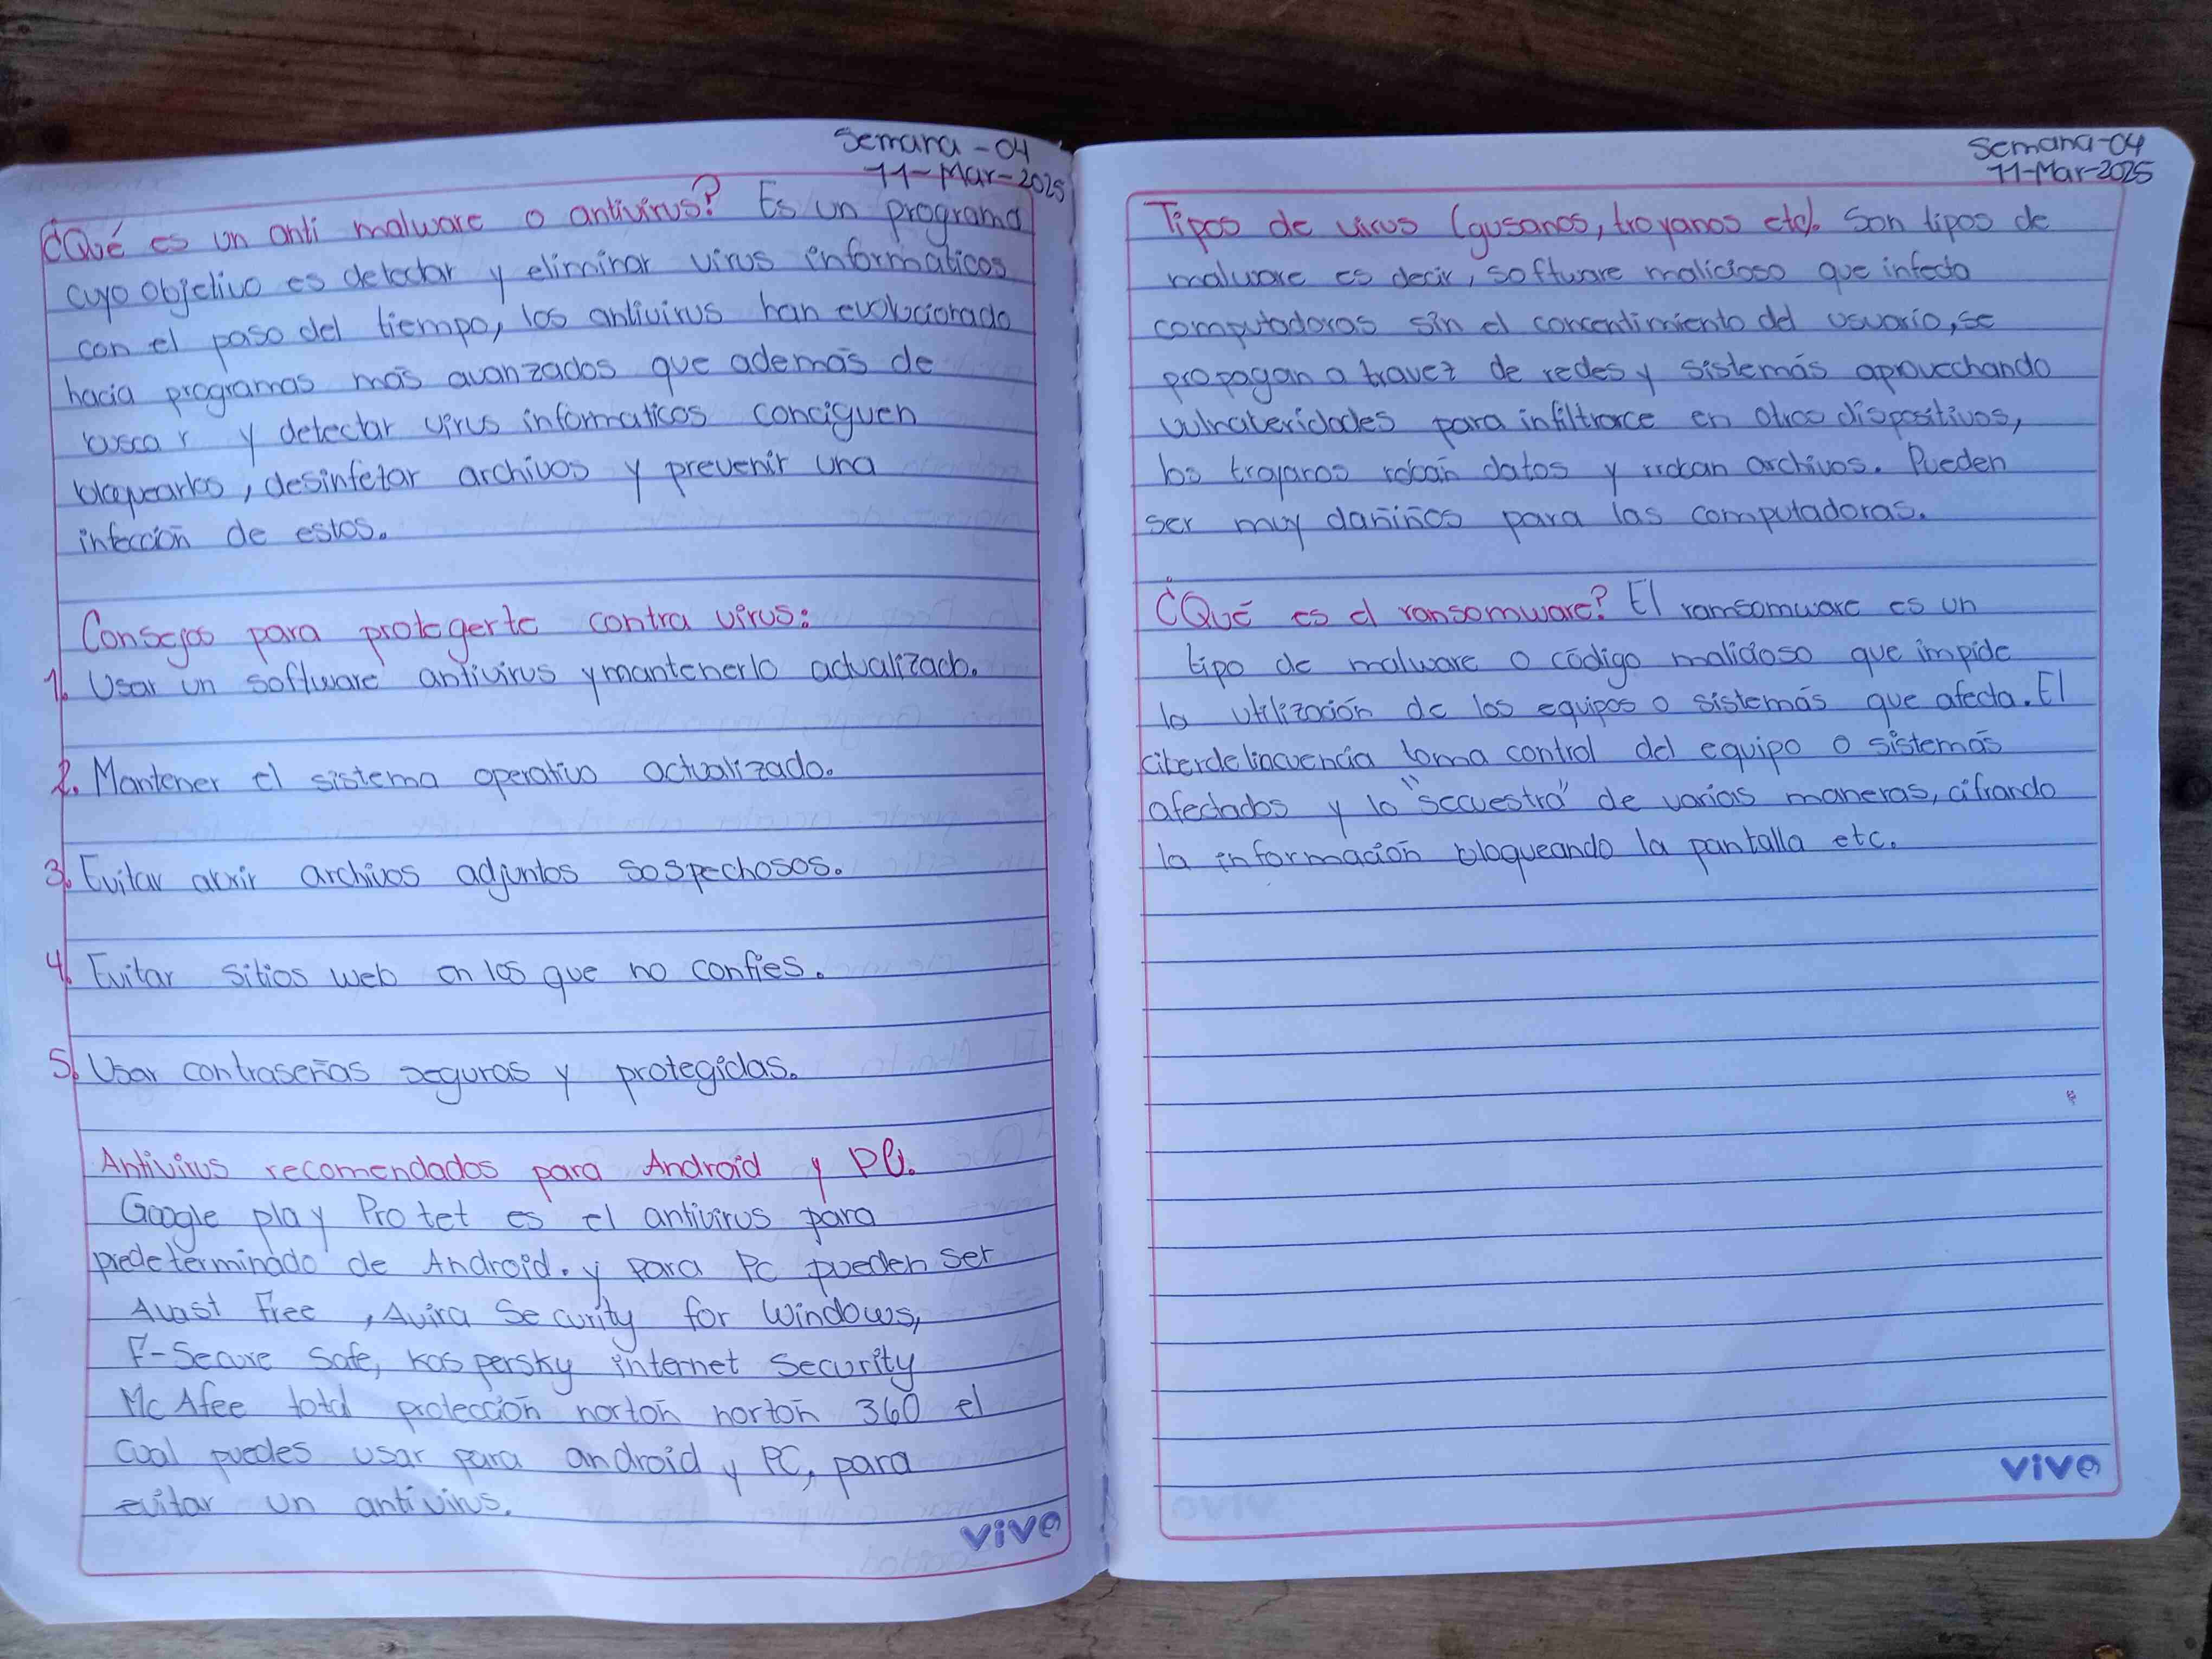 Semana-04
11-Mar-2025
¿Qué es un anti malware o antivirus? Es un programa
cuyo objetivo es detectar y eliminar virus informáticos
con el paso del tiempo, los antivirus han evolucionado
hacia programas más avanzados que además de
buscar y detectar virus informaticos conciguen
bloquearlos, desinfetar archivos y prevenir una
infección de estos.
Consejos para protegerte contra virus:
1. Usar un software antivirus y mantenerlo actualizado.
2. Mantener el sistema operativo actualizado.
3. Evitar abrir archivos adjuntos sospechosos.
4. Evitar sitios web en los que no confíes.
5. Usar contraseñas seguras y protegidas.
Antivirus recomendados para Android y PC.
Google play Protet es el antivirus para
predeterminado de Android. y para PC pueden ser
Avast Free, Avira Security for Windows,
F-Secure Safe, Kaspersky internet Security
McAfee total protección nortoñ nortoñ 360 el
cual puedes usar para android y PC, para
evitar un antivirus.
vive
Semana-04
11-Mar-2025
Tipos de virus (gusanos, troyanos etc). Son tipos de
malware es decir, software malicioso que infecta
computadoras sin el concentimiento del usuario, se
propagan a travez de redes y sistemás aprovechando
para infiltrarce en otros dispositivos,
los troyanos roban datos y archivos. Pueden
ser muy dañiños para las computadoras.
¿Qué es el ransomware? El ramsomware es un
tipo de malware o código malicioso que impide
la utilización de los equipos o sistemás que afecta. El
ciberdelincuencia toma control del equipo o sistemas
afectados y lo "secuestra" de varias maneras, cifrando
la información bloqueando la pantalla etc.
vive